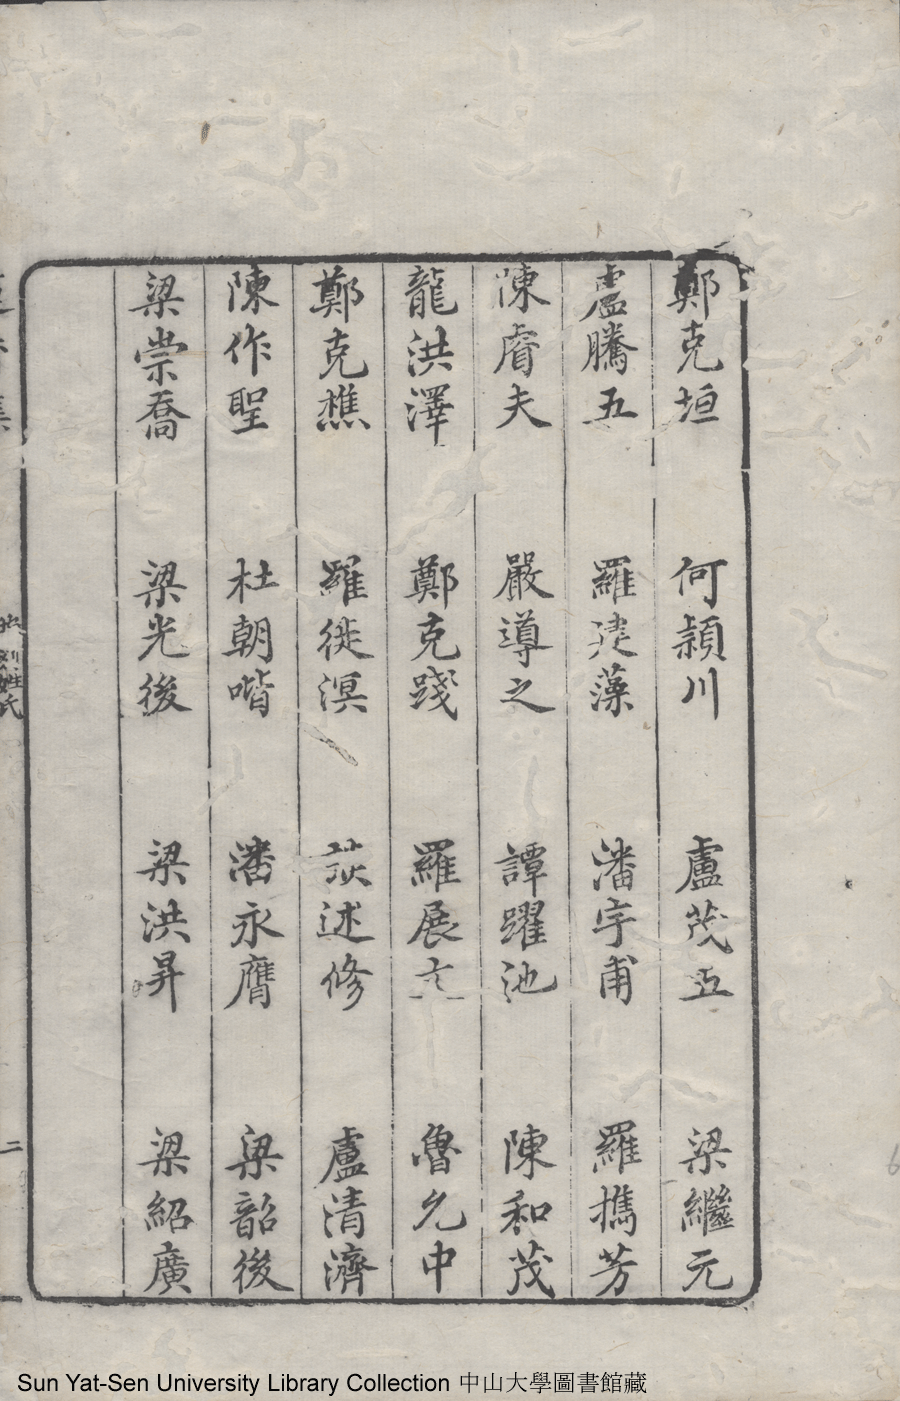 鄭克垣 何頴川 盧茂五 梁繼元
盧騰五 羅羙藻 潘宇甫 羅擕芳
陳睿夫 嚴導之 譚躍池 陳和茂
龍洪澤 鄭克踐 羅展六 魯允中
鄭克樵 羅徙溟 述修 盧清濟
陳作聖 杜朝喈 潘永膺 梁韶後
梁崇喬 梁光後 梁洪昇 梁紹廣
姓氏
二
Sun Yat-Sen University Library Collection 中山大學圖書館藏